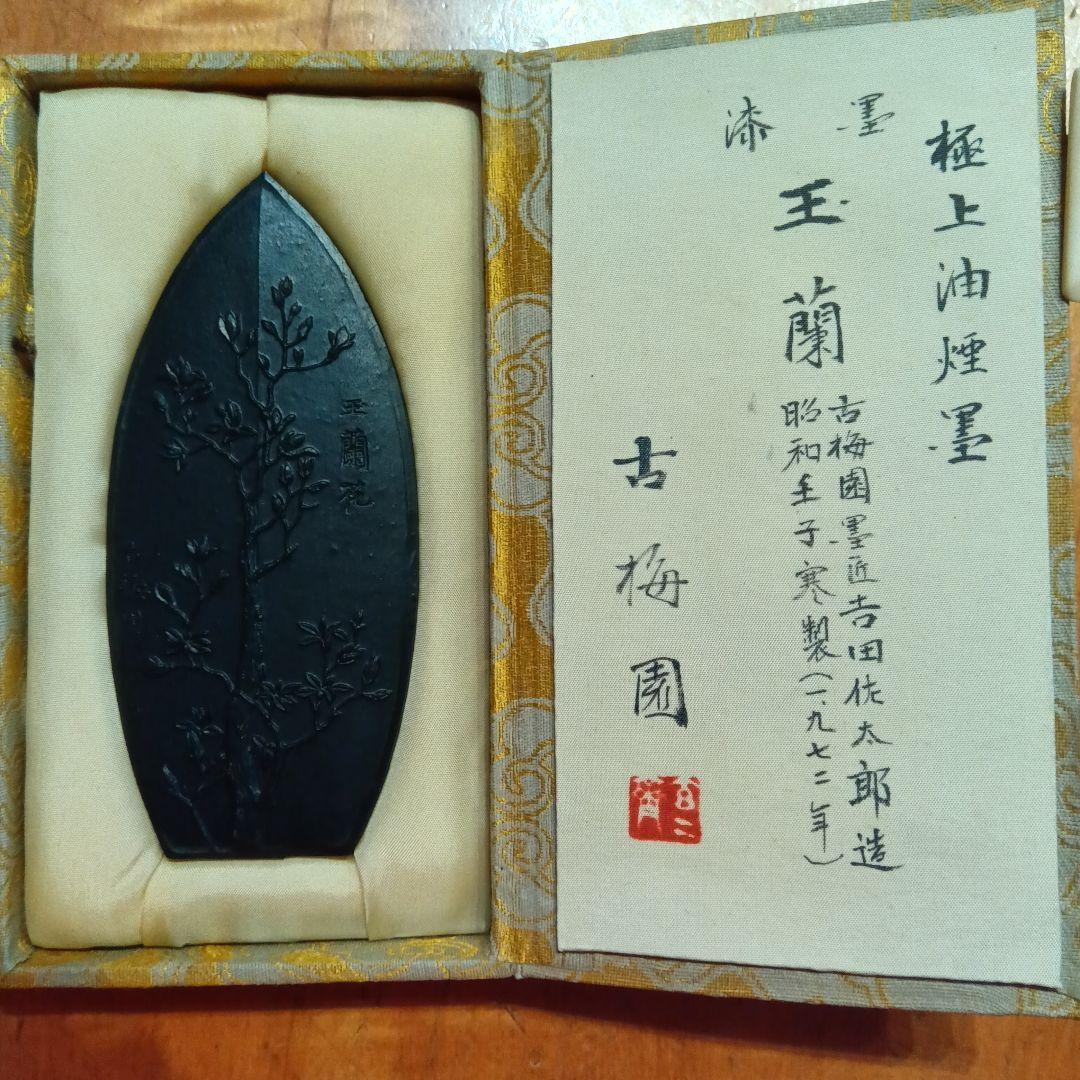 玉蘭花
極上油煙墨
漆墨
玉蘭
古梅園墨匠吉田佐太郎造
昭和壬子寒製(一九七二年)
古梅園